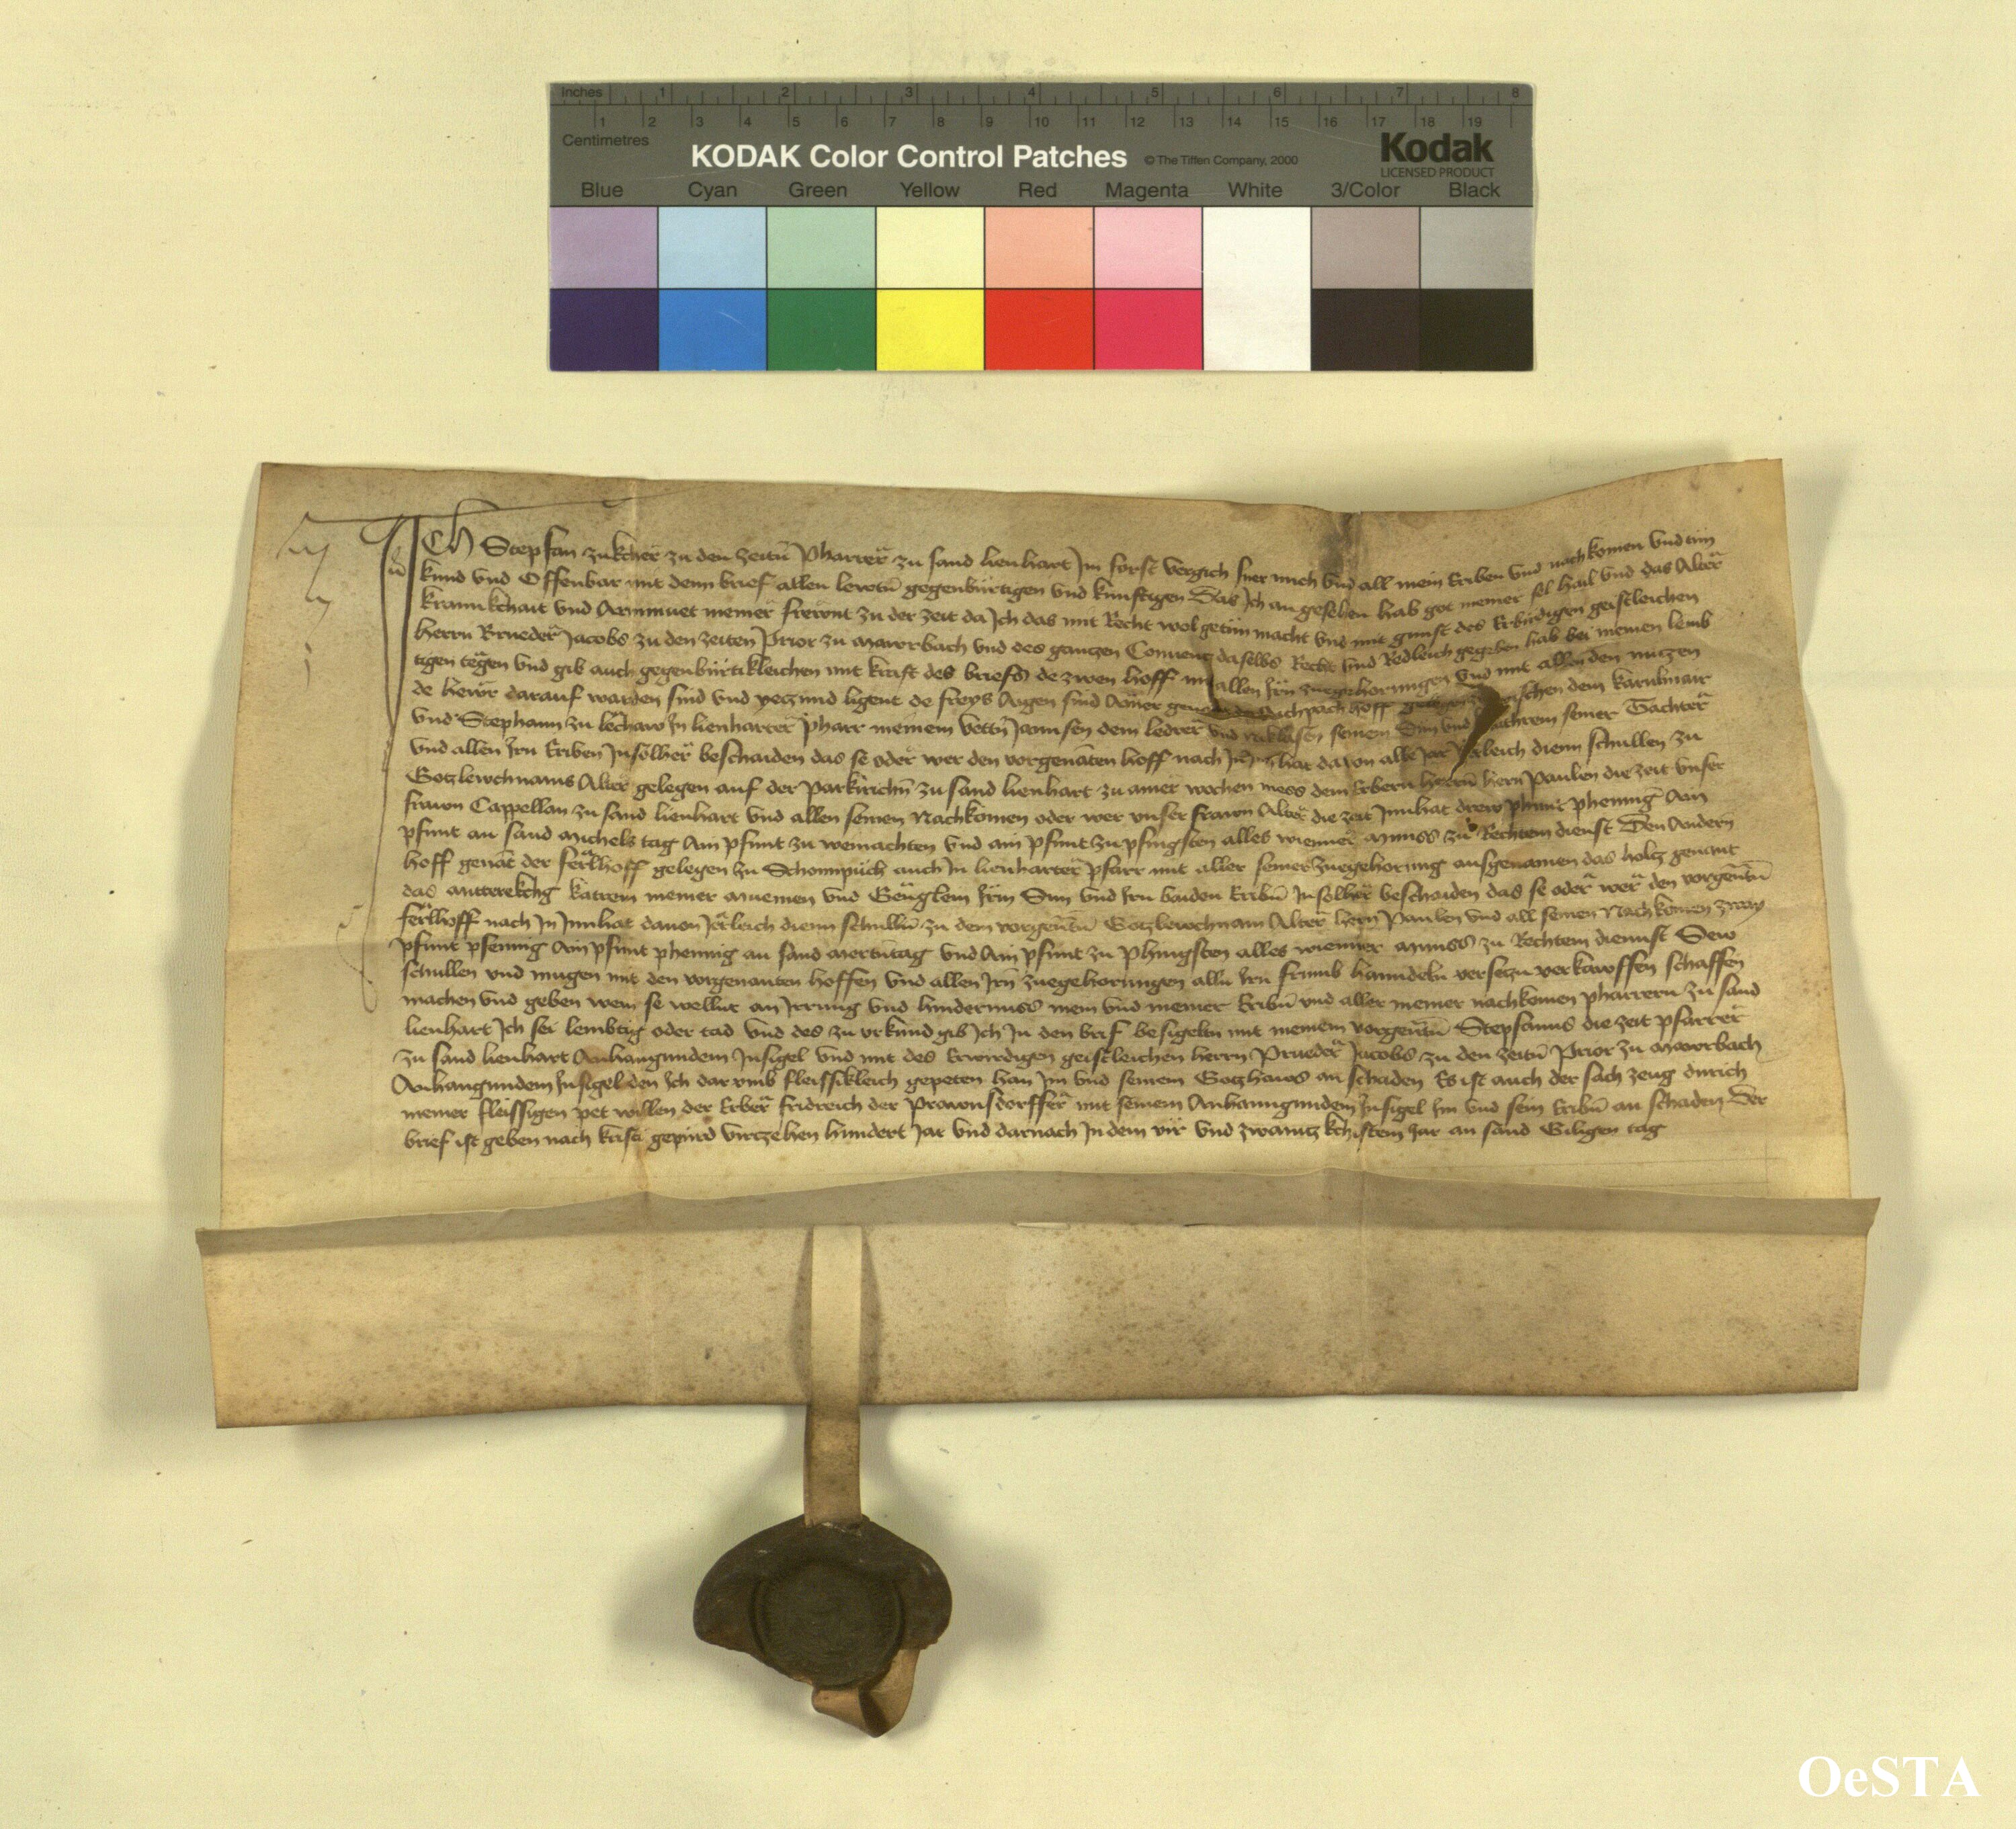 Inches 1 2 3 4 5 6 7 8
1 2 3 4 5 6 7 8 9 10 11 12 13 14 15 16 17 18 19
Centimetres
KODAK Color Control Patches © The Tiffen Company, 2000 Kodak
LICENSED PRODUCT
Blue Cyan Green Yellow Red Magenta White 3/Color Black
Ich Stepfan zukcher zu den zeitn̄ Pharrer zu sand lienhart Im forst vergich fuer mich vnd all mein Erben vnd nachkomen vnd tün
kund vnd Offenbar mit dem brief allen lewtn̄ gegenbürtigen vnd künftigen Das Ich an gesehen hab got meiner sel hail vnd das Alter
krannkchait vnd Armmuet meiner frewnt zu der zeit da Ich das mit Recht wol getün macht vnd mit gunst des Erbirdigen geistleichen
herrn Brueder Jacobs zu den zeiten Prior zu mawrbach vnd des gantzen Conuentz daselbs Recht vnd Redleich gegeben hab bei meinen lemb
tigen tegen vnd gib auch gegenbürtikleichen mit kraft des briefs de zwen hoff mit allen Irn zuegehorungen vnd mit allen den nutzen
de hewr darauf warden sind vnd yeczund ligent de freys Aigen sind Ainer hoff dem karnlmair
vnd Stephann zu lechaw In lienharter pharr meinem vettn̄ Jannsen dem ledrer vnd seinem Sun vnd seiner Tachter
vnd allen Irn Erben Insölher beschaiden das se oder wer den vorgenāten hoff nach In Innhat dauon alle Jar Jerleich dienn schullen zu
Gotzleichnams Alter gelegen auf der Parkirichn̄ zu sand lienhart zu ainer wochen mess dem Erbern herrn̄ hern Paulen die zeit vnser
frawn Cappellan zu sand lienhart vnd allen seinen Nachkomen oder wer vnser frawn Alter die zeit Innhat drew phunt phennig Ain
pfunt an sand michels tag Ain pfunt zu weinachten vnd ain pfunt zu pfingsten alles wienner munss zu Rechtem dienst Den Andern
hoff genāt der ferlhoff gelegen zu Schonnpüch auch In lienharter pfarr mit aller seiner zuegehorung ausgenomen das holtz genant
das katrein meiner muemen vnd Irm Sun vnd Irn baiden Eribn̄ Insolher beschaiden das se oder wer den vorgen̄tn̄
ferlhoff nach In Innhat dauon Jerleich dienn schulln̄ zu dem vorgen̄tn̄ Gotzleichnam Alter hern Paulen vnd all seinen Nachkomen zway
pfunt pfennig Ain pfunt phennig an sand mertn̄tag vnd Ain pfunt zu Phingsten alles wienner munss zu Rechtem diennst Sew
schullen vnd mugen mit den vorgenanten hoffen vnd allen Irn̄ zuegehorungen alln Irn frumb hanndeln versetzn verkawffen schaffen
machen vnd geben wem se wellnt an Irrung vnd hindernuss mein vnd meiner Eribn̄ vnd aller meiner nachkomen pharrern zu sand
lienhart Ich sei lembtig oder tod vnd des zu vrkund gib Ich In den brif besigeltn mit meinem vorgen̄tn̄ Stepfanns die zeit pfarrer
zu sand lienhart Anhangundem Insigel vnd mit des Erwirdigen geistleichen herrn Prueder Jacobs zu den zeitn̄ Prior zu mawrbach
Anhangundem Insigel den Ich dar vmb fleissikleich gepeten han Im vnd seinem Gotzhaws an schaden Es ist auch der sach zeug durich
meiner fleissigen pet willen der Erber fridreich der Prawnsdorffer mit seinem Anhanngundem Insigel Im vnd sein Eribn̄ an schaden Der
brief ist geben nach kristi gepürd virtzehen hundert Jar vnd darnach In dem vir vnd zwaintzkchistem Jar an sand Giligen tag
OeSTA